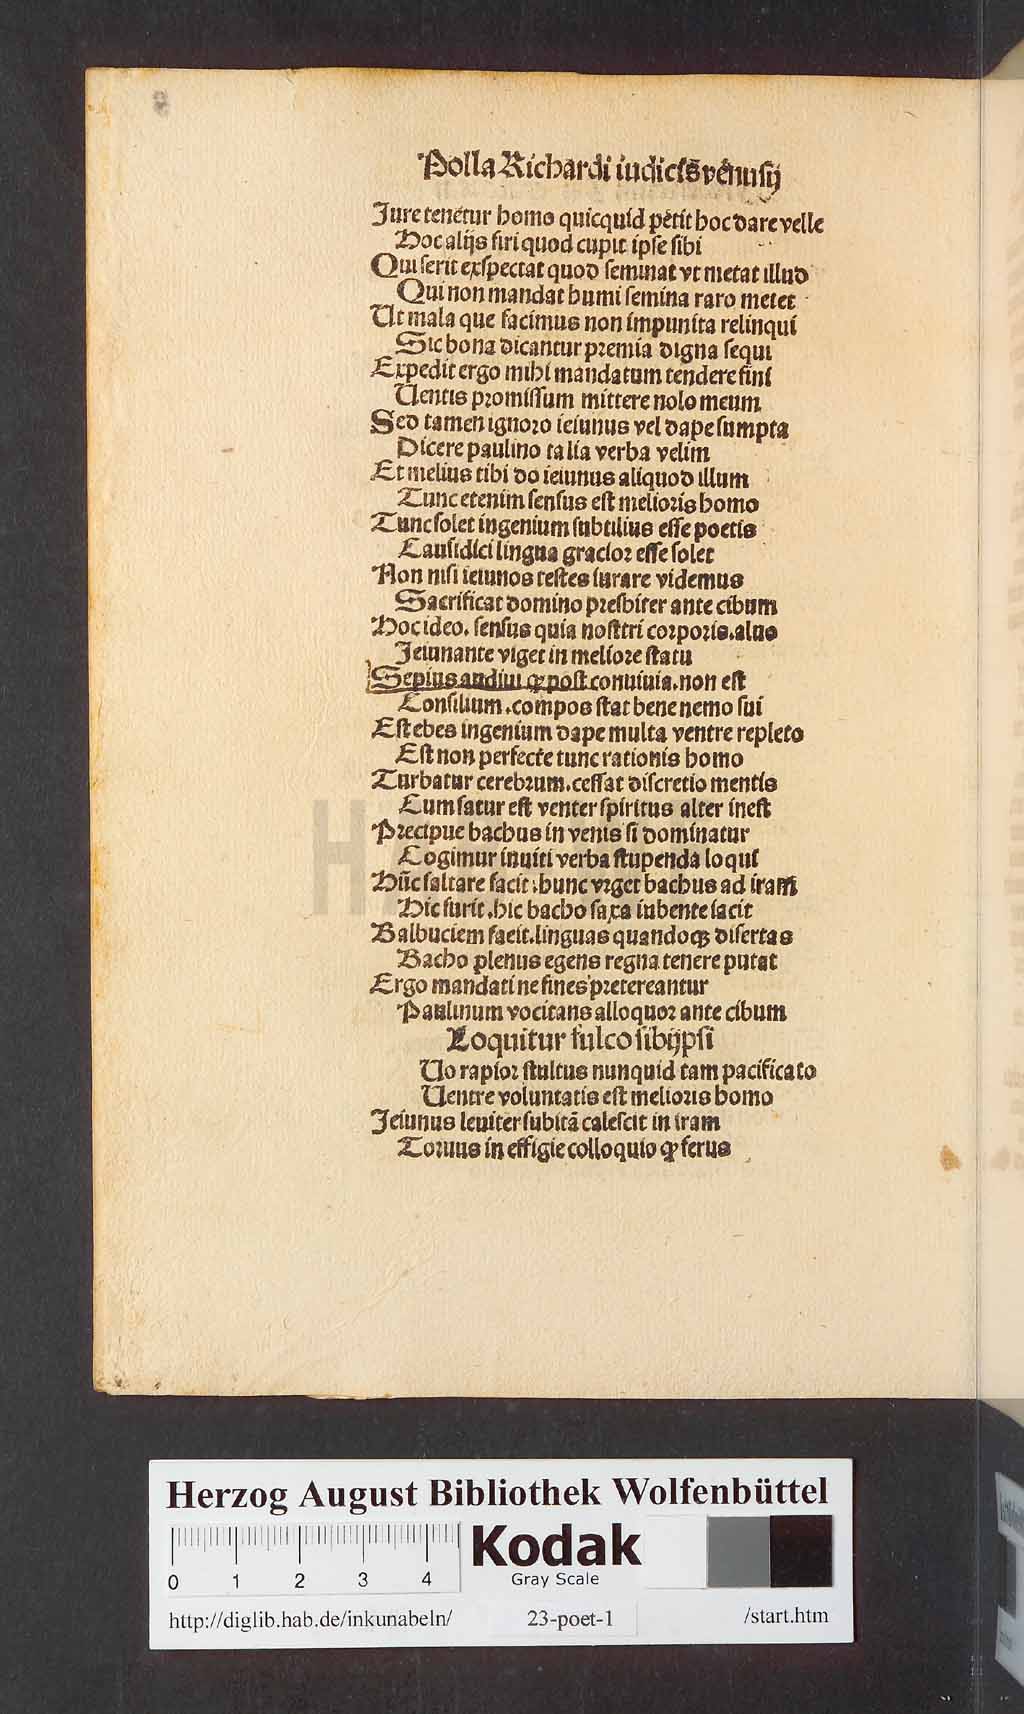 Polla Richardi iudicis̄ venusij
Jure tenetur homo quicquid petit hoc dare velle
Hoc alijs siri quod cupit ipse sibi
Qui serit exspectat quod seminat vt metat illud
Qui non mandat humi semina raro metet
Ut mala que facimus non impunita relinqui
Sic bona dicantur premia digna sequi
Expedit ergo mihi mandatum tendere fini
Uentis promissum mittere nolo meum
Sed tamen ignoro ieiunus vel dape sumpta
Dicere paulino talia verba velim
Et melius tibi do ieiunus aliquod illum
Tunc etenim sensus est melioris homo
Tunc solet ingenium subtilius esse poetis
Causidici lingua gracior esse solet
Non nisi ieiunos testes iurare videmus
Sacrificat domino presbiter ante cibum
Hoc ideo. sensus quia nosttri corporis.aluo
Jeiunante viget in meliore statu
Sepius audiui ꝙ post conuiuia.non est
Consilium.compos stat bene nemo sui
Est ebes ingenium dape multa ventre repleto
Est non perfecte tunc rationis homo
Turbatur cerebrum.cessat discretio mentis
Cum satur est venter spiritus alter inest
Precipue bachus in venis si dominatur
Cogimur inuiti verba stupenda loqui
Hūc saltare facit.hunc vrget bachus ad iram
Hic furit.hic bacho saxa iubente iacit
Balbuciem facit.linguas quandoqꝫ disertas
Bacho plenus egens regna tenere putat
Ergo mandati ne fines pretereantur
Paulinum vocitans alloquor ante cibum
Loquitur fulco sibijpsi
Uo rapior stultus nunquid tam pacificato
Uentre voluntatis est melioris homo
Jeiunus leuiter subitā calescit in iram
Toruus in effigie colloquio ꝙ ferus
HAB
Herzog August Bibliothek Wolfenbüttel
0 1 2 3 4
Kodak
Gray Scale
http://diglib.hab.de/inkunabeln/ 23-poet-1 /start.htm